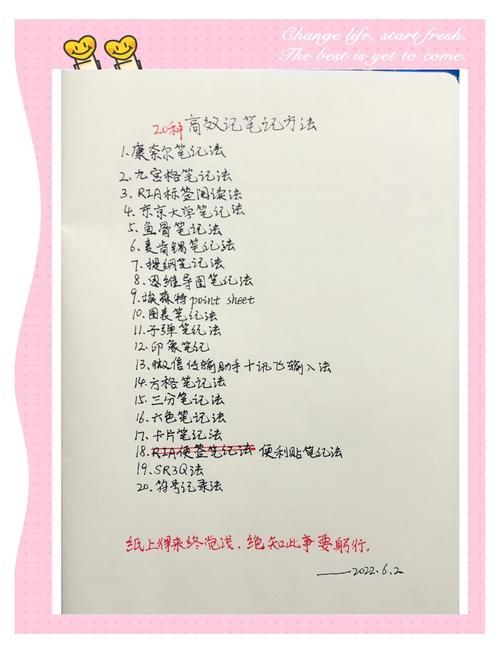 Change life, start fresh.
The best is yet to come.
20种 高效记笔记方法
1.康奈尔笔记法
2.九宫格笔记法
3.RIA标签阅读法
4.东京大学笔记法
5.鱼骨笔记法
6.麦肯锡笔记法
7.提纲笔记法
8.思维导图笔记法
9.埃森特point sheet
10.图表笔记法
11.子弹笔记法
12.印象笔记
13.微信传输助手+讯飞输入法
14.方格笔记法
15.三分笔记法
16.六色笔记法
17.卡片笔记法
18.RIA便签笔记法 便利贴笔记法
19.SR3Q法
20.符号记录法
纸上得来终觉浅，绝知此事要躬行。
——2022.6.2